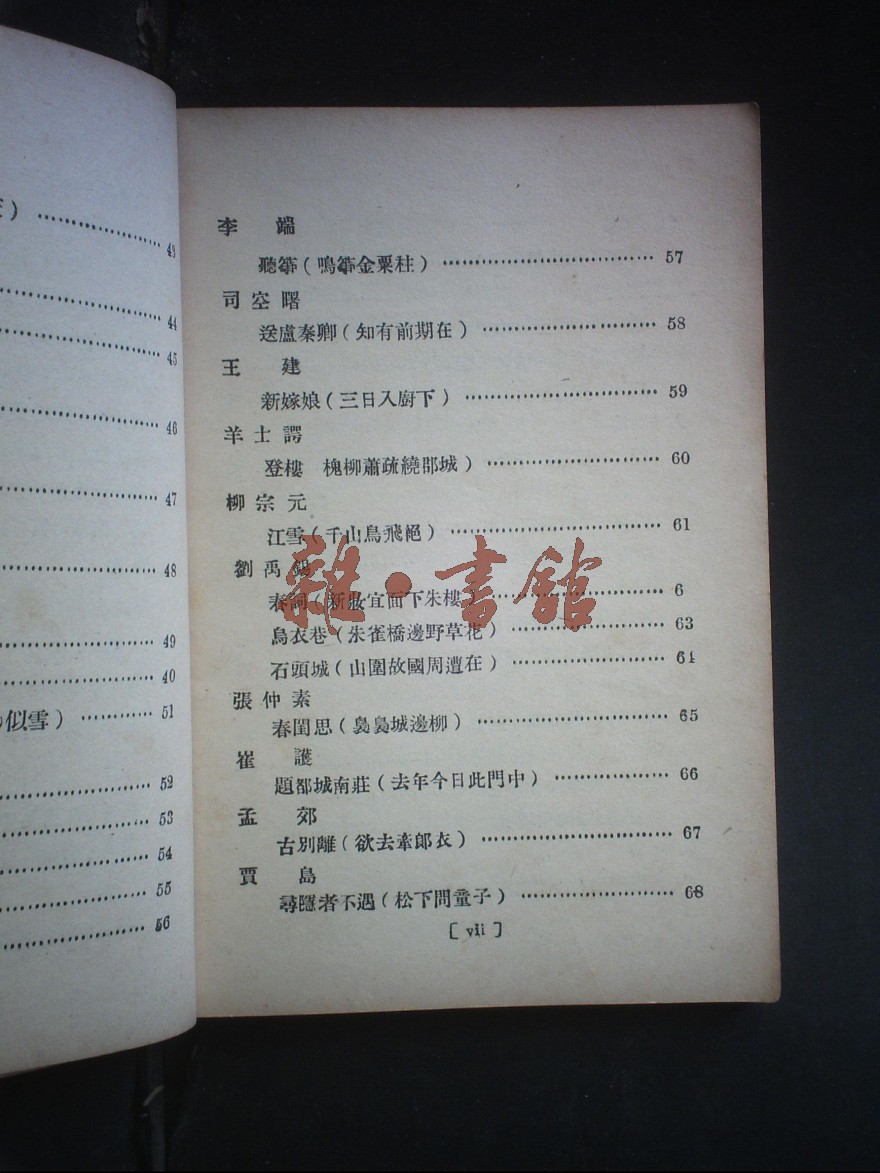 43
44
45
46
47
48
49
40
似雪）………… 51
52
53
54
55
56
李　端
聽箏（鳴箏金粟柱）……………………………… 57
司空曙
送盧秦卿（知有前期在）………………………… 58
王　建
新嫁娘（三日入廚下）…………………………… 59
羊士諤
登樓　槐柳蕭疏繞郡城）………………………… 60
柳宗元
江雪（千山鳥飛絕）……………………………… 61
劉禹錫
春詞（新妝宜面下朱樓）………………………… 6
烏衣巷（朱雀橋邊野草花）……………………… 63
石頭城（山圍故國周遭在）……………………… 64
張仲素
春閨思（裊裊城邊柳）…………………………… 65
崔　護
題都城南莊（去年今日此門中）………………… 66
孟　郊
古別離（欲去牽郎衣）…………………………… 67
賈　島
尋隱者不遇（松下問童子）……………………… 68
〔vii〕
雜·書館